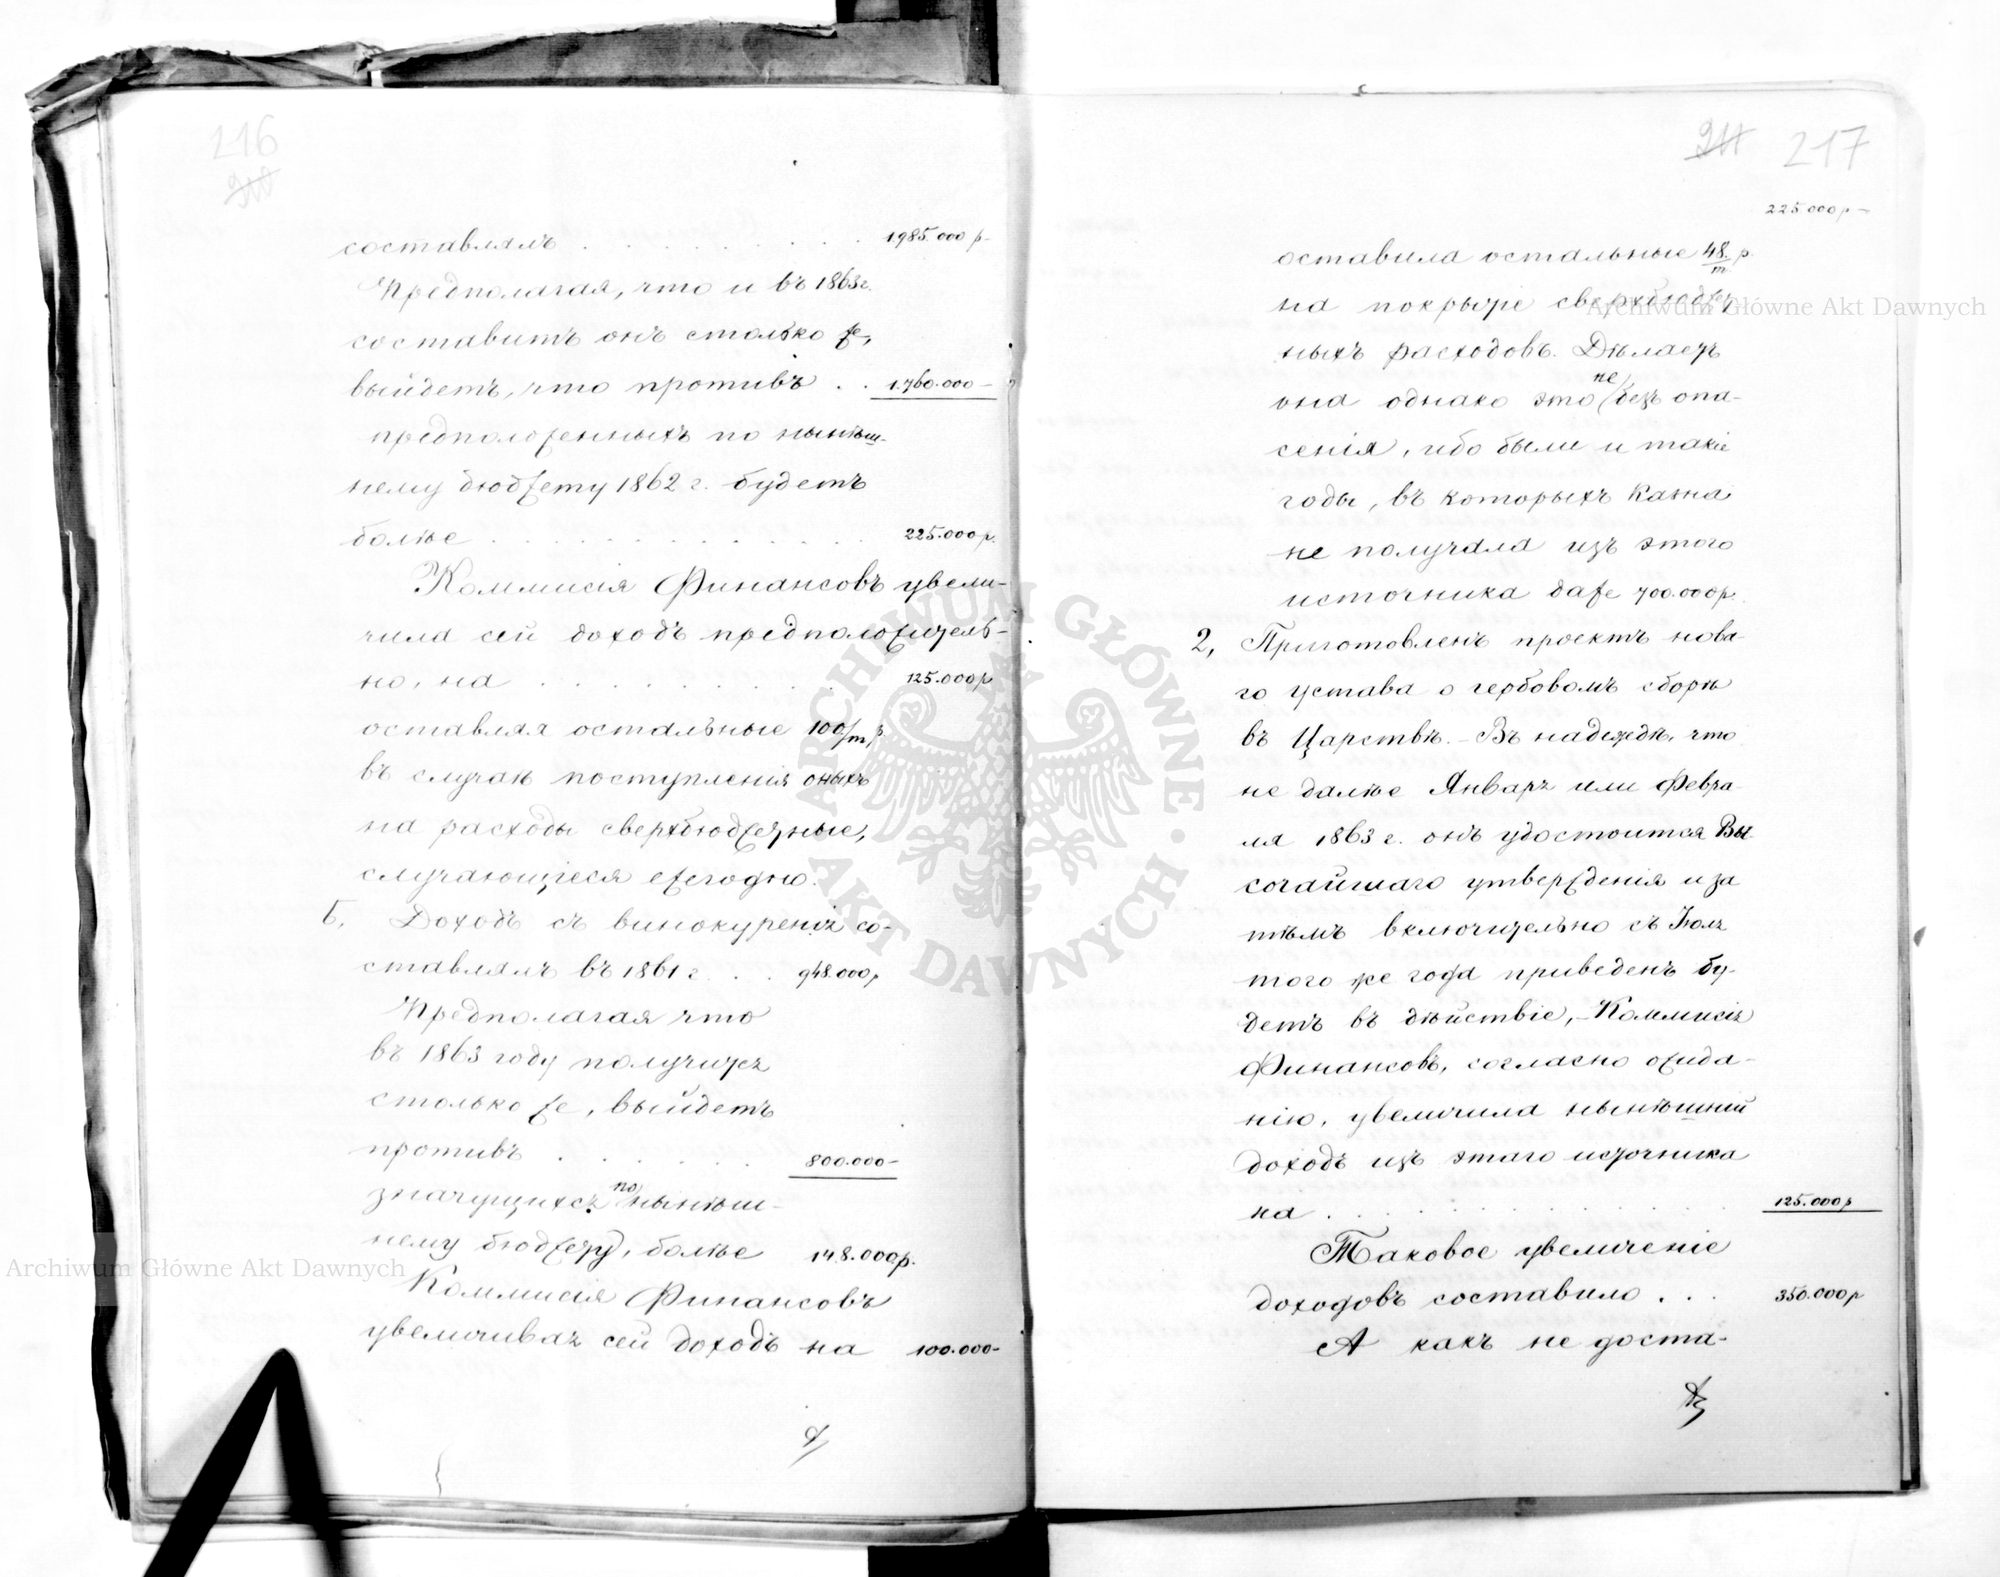 216
210
составлялъ . . . . . . . . . 1.985.000 р.
Предполагая, что и въ 1863 г.
составитъ онъ столько же,
выйдетъ, что противъ . . 1.760.000 —
предположенныхъ по нынѣш-
нему бюджету 1862 г. будетъ
болѣе . . . . . . . . . . . . 225.000 р.
Коммисія Финансовъ увели-
чила сей доходъ предположитель-
но, на . . . . . . . . . . 125.000 р
оставляя остальные 100/m р.
въ случаѣ поступленія оныхъ
на расходы сверхбюджетные,
случающіеся ежегодно.
Б. Доходъ съ винокуренія со-
ставлялъ въ 1861 г . . . 948.000 р
Предполагая что
въ 1863 году получится
столько же, выйдетъ
противъ . . . . . . . 800.000 —
значущихся по нынѣш-
нему бюджету, болѣе 148.000 р.
Коммисія Финансовъ
увеличивая сей доходъ на 100.000 —
211 217
225.000 р —
оставила остальные 48/m р.
на покрытіе сверхбюджет
ныхъ расходовъ. Дѣлаетъ
она однако это не безъ опа-
сенія, ибо были и такіе
годы, въ которыхъ Казна
не получала изъ этого
источника даже 700.000 р.
2, Приготовленъ проектъ нова-
го устава о гербовомъ сборѣ
въ Царствѣ. — Въ надеждѣ, что
не далѣе Января или Февра-
ля 1863 г. онъ удостоится Вы-
сочайшаго утвержденія и за
тѣмъ включительно съ Іюля
того же года приведенъ бу-
детъ въ дѣйствіе, — Коммисія
Финансовъ, согласно ожида-
нію, увеличила нынѣшній
доходъ изъ этаго источника
на . . . . . . . . . . . 125.000 р
Таковое увеличеніе
доходовъ составило . . . 350.000 р
А какъ не доста-
ARCHIWUM GŁÓWNE AKT DAWNYCH
Archiwum Główne Akt Dawnych
Archiwum Główne Akt Dawnych